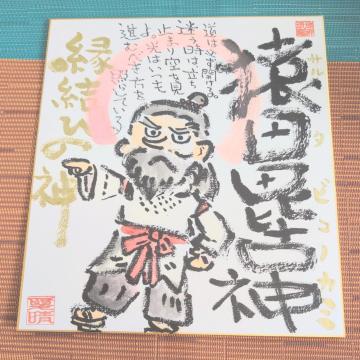 猿田毘古神
サルタビコノカミ
道は必ず開ける
迷う時は立ち
止まり空を見
よ。光はいつも
進むべき方を
照らしている
縁結びの神